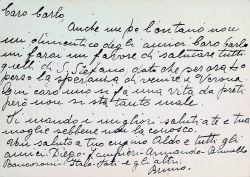 Caro Carlo
Anche se po lontano non
mi dimentico degli amici Caro Carlo
mi farai un favore di salutare tutti
quelli di S. Stefano, dato che per ora to
perso la speranza di venire a Verona
Ogni caro mio si fa una vita da preti
però non si sta tanto male.
Ti mando i migliori saluti a te e tua
moglie sebbene non la conosco.
Un saluto a tuo cugino Aldo e tutti gli
amici Diego - Armando - Brunello
Italo - e gli altri.
Bruno.